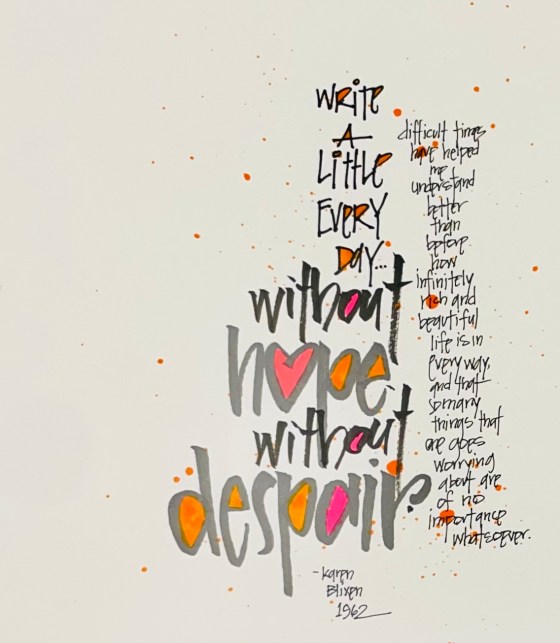 Write
A
Little
Every
Day...
without
hope
without
despair.
-Karen
Blixen
1962
difficult times
have helped
me
understand
better
than
before
how
infinitely
rich and
beautiful
life is in
every way,
and that
so many
things that
one goes
worrying
about are
of no
importance
whatsoever.